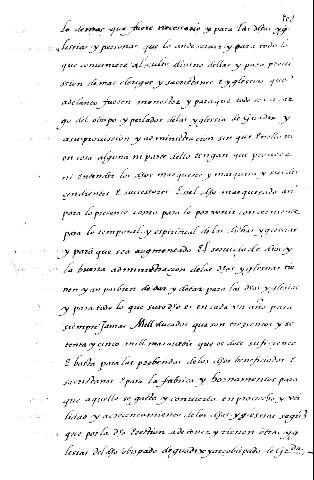 lo demas que fuere necesario y para las dhas yg
lesias y personas que lo an de servir y para todo lo
que concerniere al culto divino dellas y para provi
sion de mas clerigos y sacristanes e yglesias que
adelante fuesen menester y para que todo sea a car
go del obispo y perlados de la yglesia de Guadix y
a su provission y administracion sin que en ello ni
en cosa alguna ni parte dello tengan que
ni entender los dhos marqueses y marquesa y sus des
cendientes e sucessores en el dho marquesado ansi
para lo presente como para lo por venir concerniente
para lo temporal y espiritual de las dichas yglesias
y para que sea augmentado el servicio de dios y
la buena administracion de las dhas yglesias
nen y an por bien de dar y dotar para las dhas yglesias
y para todo lo que suso dho es en cada un año para
siempre jamas mill ducados que son trezientos y se
tenta y cinco mill maravedis que es dote suficiente
e basta para los prebendas de los dhos beneficiados e
sacristanes e para la fabrica y hornamentos para
que aquello se gaste y convierta en provecho y uti
lidad y acrecentamiento de las dhas yglesias segũ
que por la dha erection adelante y tienen otras yg
lesias del dho obispado de guadix y arcobispado de Grda